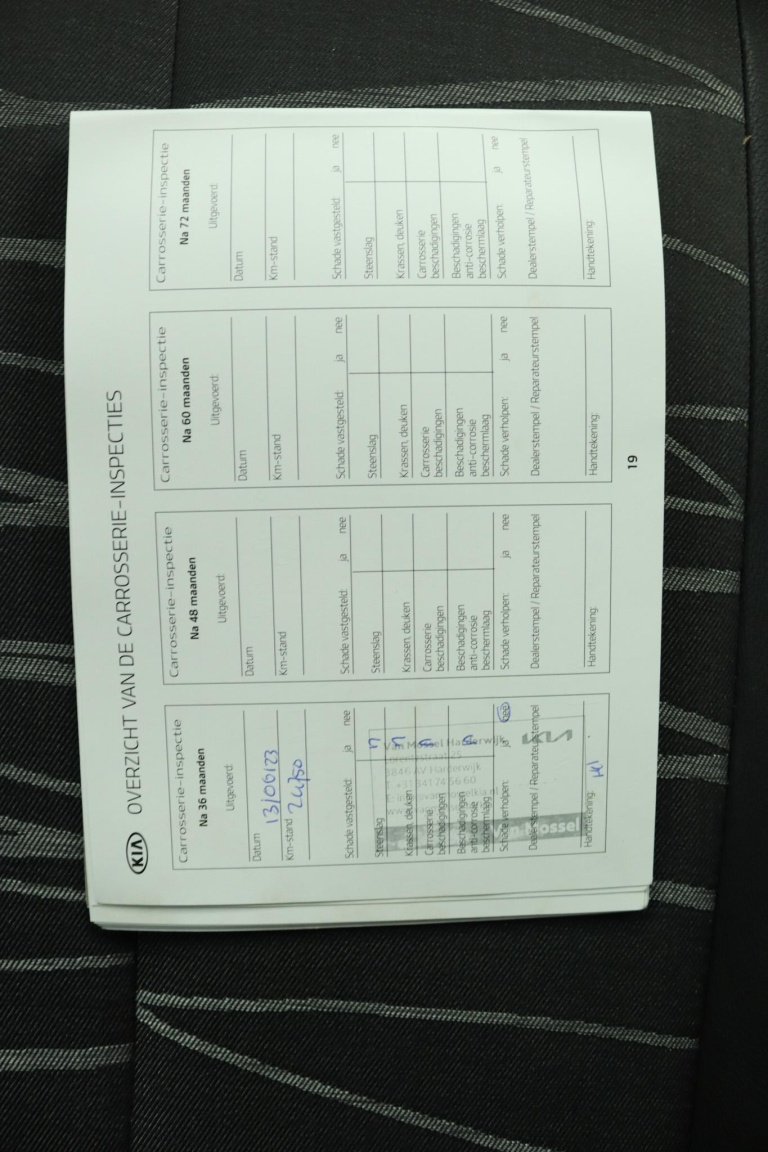 KIA OVERZICHT VAN DE CARROSSERIE-INSPECTIES
Carrosserie-inspectie
Na 36 maanden
Uitgevoerd:
Datum 13/06/23
Km-stand 24750
Schade vastgesteld: ja nee
Steenslag n
Krassen, deuken n
Carrosserie
beschadigingen n
Beschadigingen
anti-corrosie
beschermlaag n
Schade verholpen: ja nee
Dealerstempel / Reparateurstempel
Van Mossel Harderwijk
3846 AV Harderwijk
KIA
Van Mossel
Handtekening:
Carrosserie-inspectie
Na 48 maanden
Uitgevoerd:
Datum
Km-stand
Schade vastgesteld: ja nee
Steenslag
Krassen, deuken
Carrosserie
beschadigingen
Beschadigingen
anti-corrosie
beschermlaag
Schade verholpen: ja nee
Dealerstempel / Reparateurstempel
Handtekening:
Carrosserie-inspectie
Na 60 maanden
Uitgevoerd:
Datum
Km-stand
Schade vastgesteld: ja nee
Steenslag
Krassen, deuken
Carrosserie
beschadigingen
Beschadigingen
anti-corrosie
beschermlaag
Schade verholpen: ja nee
Dealerstempel / Reparateurstempel
Handtekening:
Carrosserie-inspectie
Na 72 maanden
Uitgevoerd:
Datum
Km-stand
Schade vastgesteld: ja nee
Steenslag
Krassen, deuken
Carrosserie
beschadigingen
Beschadigingen
anti-corrosie
beschermlaag
Schade verholpen: ja nee
Dealerstempel / Reparateurstempel
Handtekening:
19